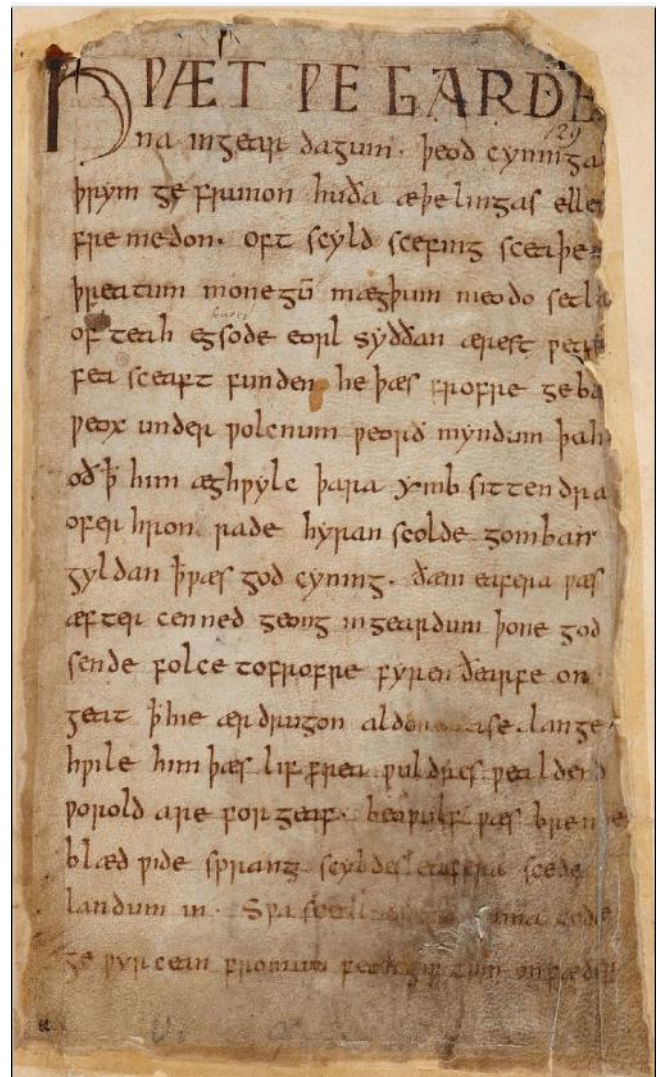 HǷÆT ǷE GARDE
129
na ingear dagum. þeod cyninga
þrym ge frunon huða æþelingas elle
fre medon. oft scyld scefing sceaþe
þreatum monegū mægþum meodo setla
of teah egsode eorl syððan ærest ƿear
fea sceaft funden he þæs frofre geba
ƿeox under ƿolcnum ƿeorð myndum þah
oð ꝥ him æghƿylc þara ymb sittendra
ofer hron rade hyran scolde gomban
gyldan ꝥƿæs god cyning. ðæm eafera ƿæs
æfter cenned geong ingeardum þone god
sende folce tofrofre fyren ðearfe on
geat ꝥhie ær drugon aldor ase. lange
hƿile him þæs lif frea ƿuldres ƿealdend
ƿorold are for geaf. beoƿulf ƿæs breme
blæd ƿide sprang scyldes eafera scede
landum in. Sƿa
ge ƿyrcean fromum feoh giftum onfæder